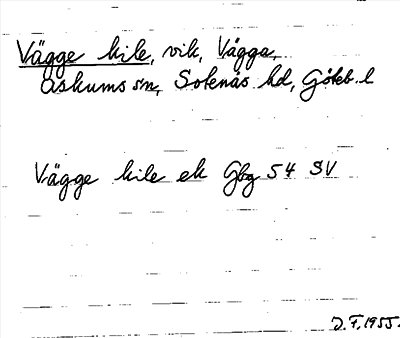 Vägge kile, vik, Vägga,
Askums sn, Sotenäs hd, Göteb. l
Vägge kile ek Gbg 54 SV
D. F. 1955.